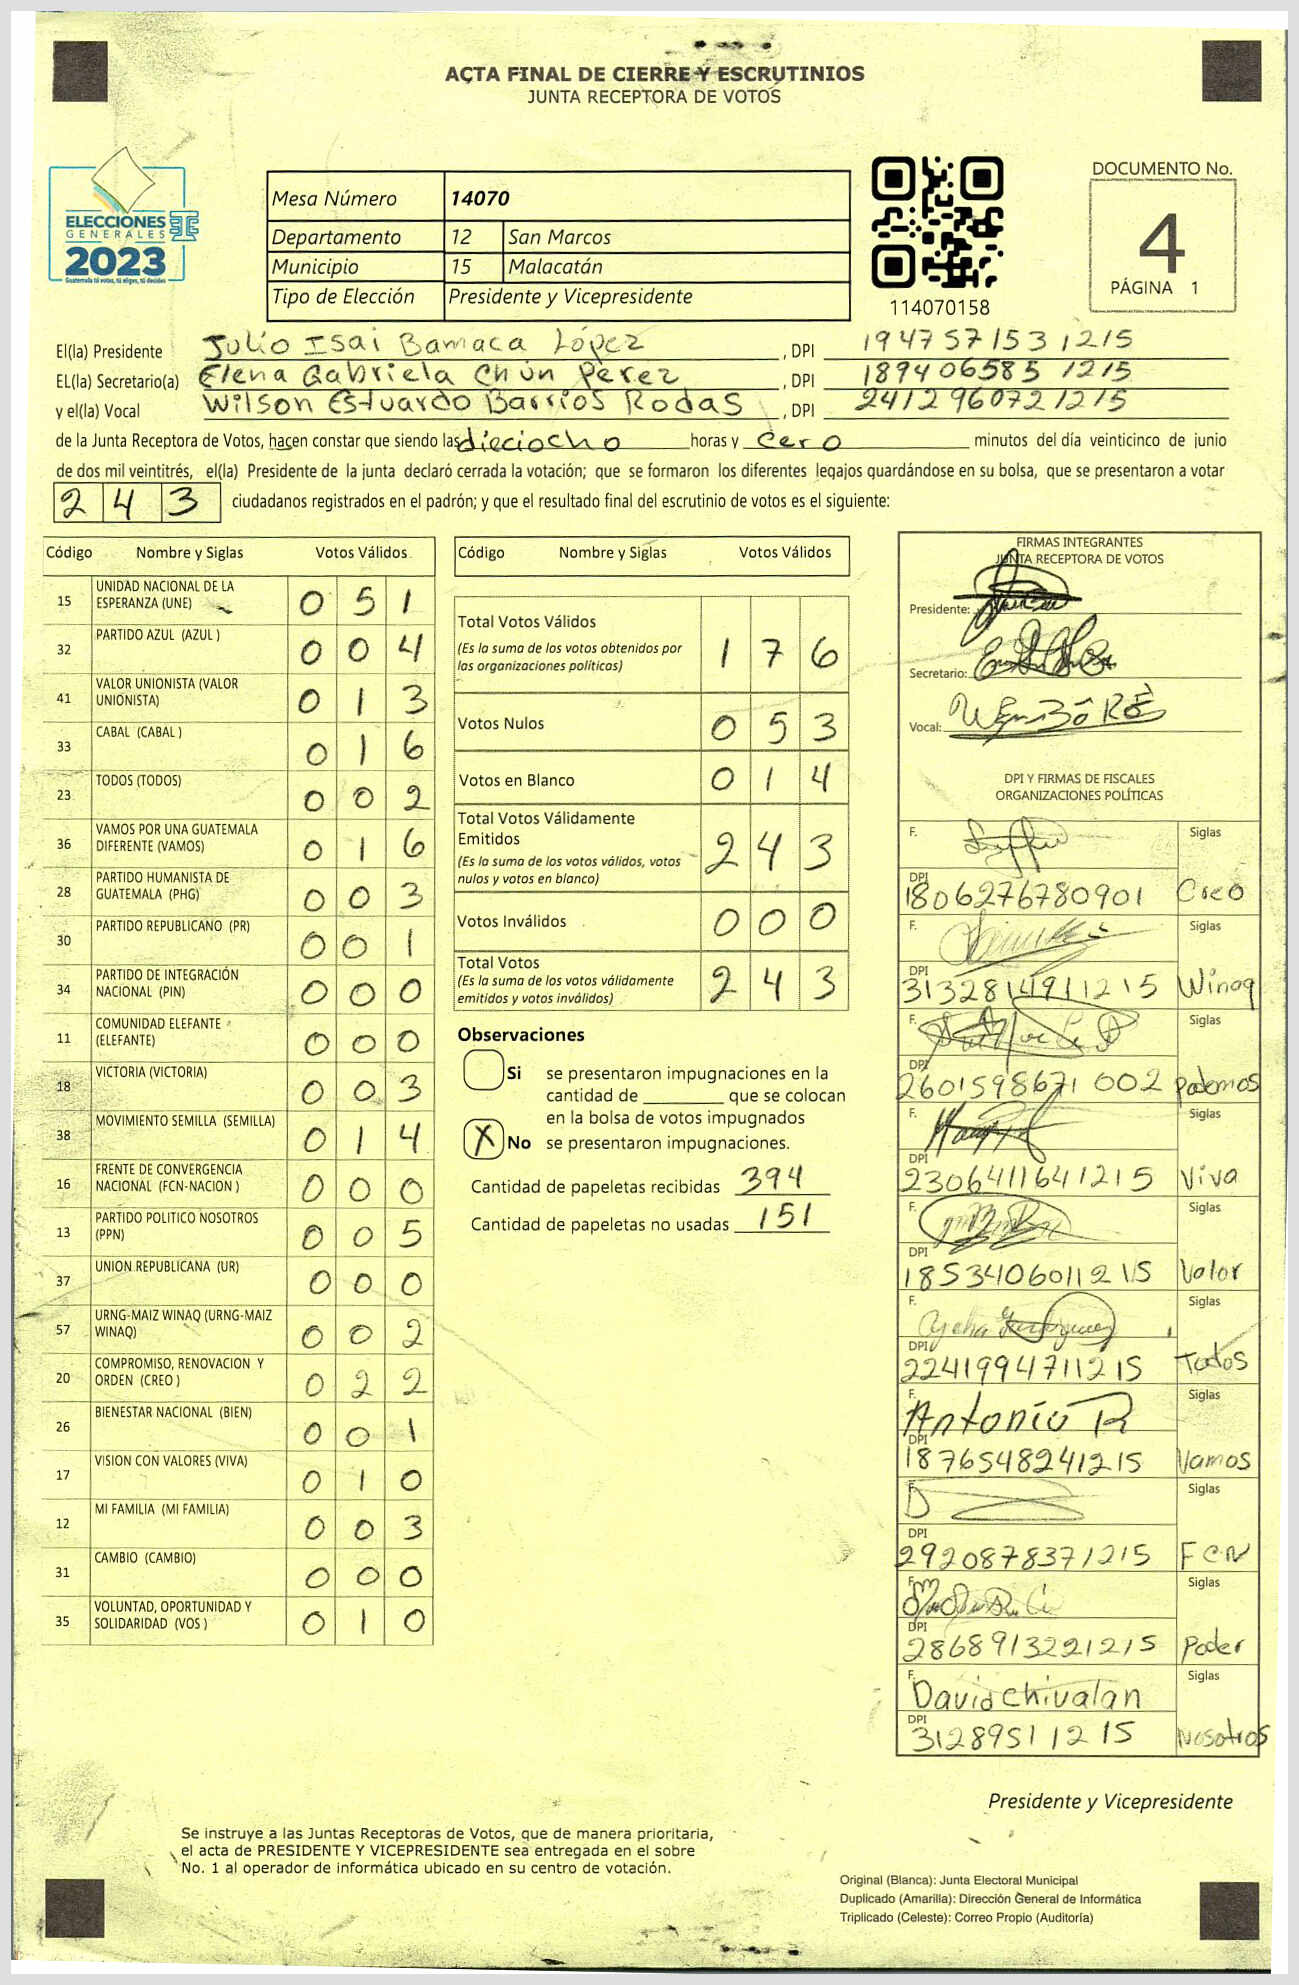 ACTA FINAL DE CIERRE Y ESCRUTINIOS
JUNTA RECEPTORA DE VOTOS
ELECCIONES
GENERALES
2023
Guatemala tú votas, tú eliges, tú decides
Mesa Número 14070
Departamento 12 San Marcos
Municipio 15 Malacatán
Tipo de Elección Presidente y Vicepresidente
114070158
DOCUMENTO No.
4
PÁGINA 1
El(la) Presidente Julio Isai Bamaca López, DPI 1947571531215
EL(la) Secretario(a) Elena Gabriela Chún Perez, DPI 1894065851215
y el(la) Vocal Wilson Estuardo Barrios Rodas, DPI 2412960721215
de la Junta Receptora de Votos, hacen constar que siendo las dieciocho horas y cero minutos del día veinticinco de junio
de dos mil veintitrés, el(la) Presidente de la junta declaró cerrada la votación; que se formaron los diferentes legajos guardándose en su bolsa, que se presentaron a votar
243 ciudadanos registrados en el padrón; y que el resultado final del escrutinio de votos es el siguiente:
Código Nombre y Siglas Votos Válidos
15 UNIDAD NACIONAL DE LA ESPERANZA (UNE) 051
32 PARTIDO AZUL (AZUL ) 004
41 VALOR UNIONISTA (VALOR UNIONISTA) 013
33 CABAL (CABAL ) 016
23 TODOS (TODOS) 002
36 VAMOS POR UNA GUATEMALA DIFERENTE (VAMOS) 016
28 PARTIDO HUMANISTA DE GUATEMALA (PHG) 003
30 PARTIDO REPUBLICANO (PR) 001
34 PARTIDO DE INTEGRACIÓN NACIONAL (PIN) 000
11 COMUNIDAD ELEFANTE (ELEFANTE) 000
18 VICTORIA (VICTORIA) 003
38 MOVIMIENTO SEMILLA (SEMILLA) 014
16 FRENTE DE CONVERGENCIA NACIONAL (FCN-NACION ) 000
13 PARTIDO POLITICO NOSOTROS (PPN) 005
37 UNION REPUBLICANA (UR) 000
57 URNG-MAIZ WINAQ (URNG-MAIZ WINAQ) 002
20 COMPROMISO, RENOVACION Y ORDEN (CREO ) 022
26 BIENESTAR NACIONAL (BIEN) 001
17 VISION CON VALORES (VIVA) 010
12 MI FAMILIA (MI FAMILIA) 003
31 CAMBIO (CAMBIO) 000
35 VOLUNTAD, OPORTUNIDAD Y SOLIDARIDAD (VOS ) 010
Código Nombre y Siglas Votos Válidos
Total Votos Válidos 176
(Es la suma de los votos obtenidos por
las organizaciones políticas)
Votos Nulos 053
Votos en Blanco 014
Total Votos Válidamente
Emitidos 243
(Es la suma de los votos válidos, votos
nulos y votos en blanco)
Votos Inválidos 000
Total Votos 243
(Es la suma de los votos válidamente
emitidos y votos inválidos)
Observaciones
Si se presentaron impugnaciones en la
cantidad de ________ que se colocan
en la bolsa de votos impugnados
X No se presentaron impugnaciones.
Cantidad de papeletas recibidas 394
Cantidad de papeletas no usadas 151
FIRMAS INTEGRANTES
JUNTA RECEPTORA DE VOTOS
Presidente:
Secretario:
Vocal:
DPI Y FIRMAS DE FISCALES
ORGANIZACIONES POLÍTICAS
F. Siglas
DPI 1806276780901 Creo
F. Siglas
DPI 3132814911215 Winaq
F. Siglas
DPI 2601598671002 Podemos
F. Siglas
DPI 2306411641215 Viva
F. Siglas
DPI 1853406011215 Valor
F. Siglas
DPI 2241994711215 Todos
F. Antonio R Siglas
DPI 1876548241215 Vamos
F. Siglas
DPI 2920878371215 FCN
F. Siglas
DPI 2868913221215 Poder
F. David Chivalan Siglas
DPI 31289511215 Nosotros
Presidente y Vicepresidente
Se instruye a las Juntas Receptoras de Votos, que de manera prioritaria,
el acta de PRESIDENTE Y VICEPRESIDENTE sea entregada en el sobre
No. 1 al operador de informática ubicado en su centro de votación.
Original (Blanca): Junta Electoral Municipal
Duplicado (Amarilla): Dirección General de Informática
Triplicado (Celeste): Correo Propio (Auditoría)